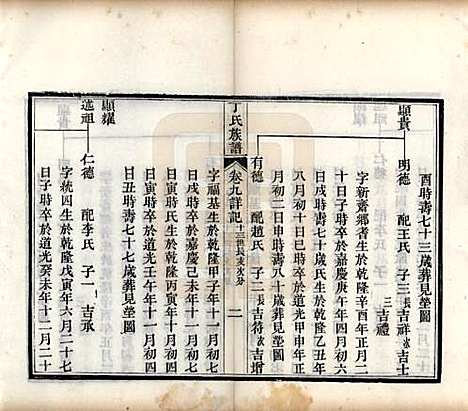 酉時壽七十三歲葬見塋圖
顯貴
明德 配王氏 子三 長吉祥 次吉士
三吉禮
字新齋鄉耆生於乾隆辛酉年正月二
十日子時卒於嘉慶庚午年四月初六
日戌時壽七十歲氏生於乾隆乙丑年
八月初十日巳時卒於道光甲申年正
月初二日申時壽八十歲葬見塋圖
有德 配趙氏 子二 長吉符 次吉增
丁氏族譜
卷九詳記
二
字福基生於乾隆甲子年十一月初七
日寅時卒於嘉慶己未年十一月初四
日寅時氏生於乾隆丙寅年十一月初四
日丑時壽七十七歲葬見塋圖
顯耀
仁德 配李氏 子一 吉承
字統四生於乾隆戊寅年六月二十七
日子時卒於道光癸未年十二月二十